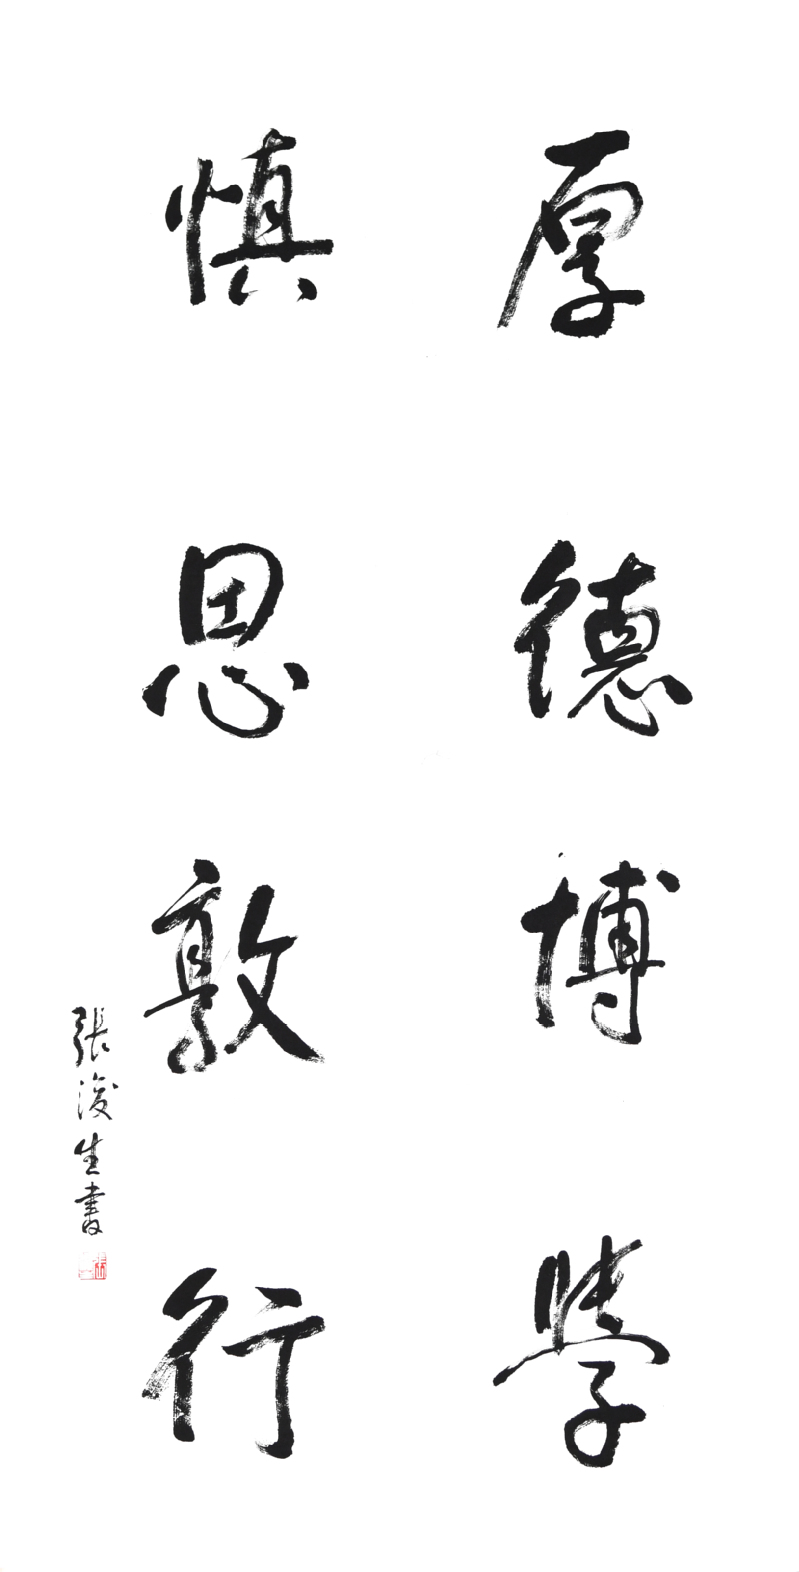 厚德博學
慎思敦行
張浚生書